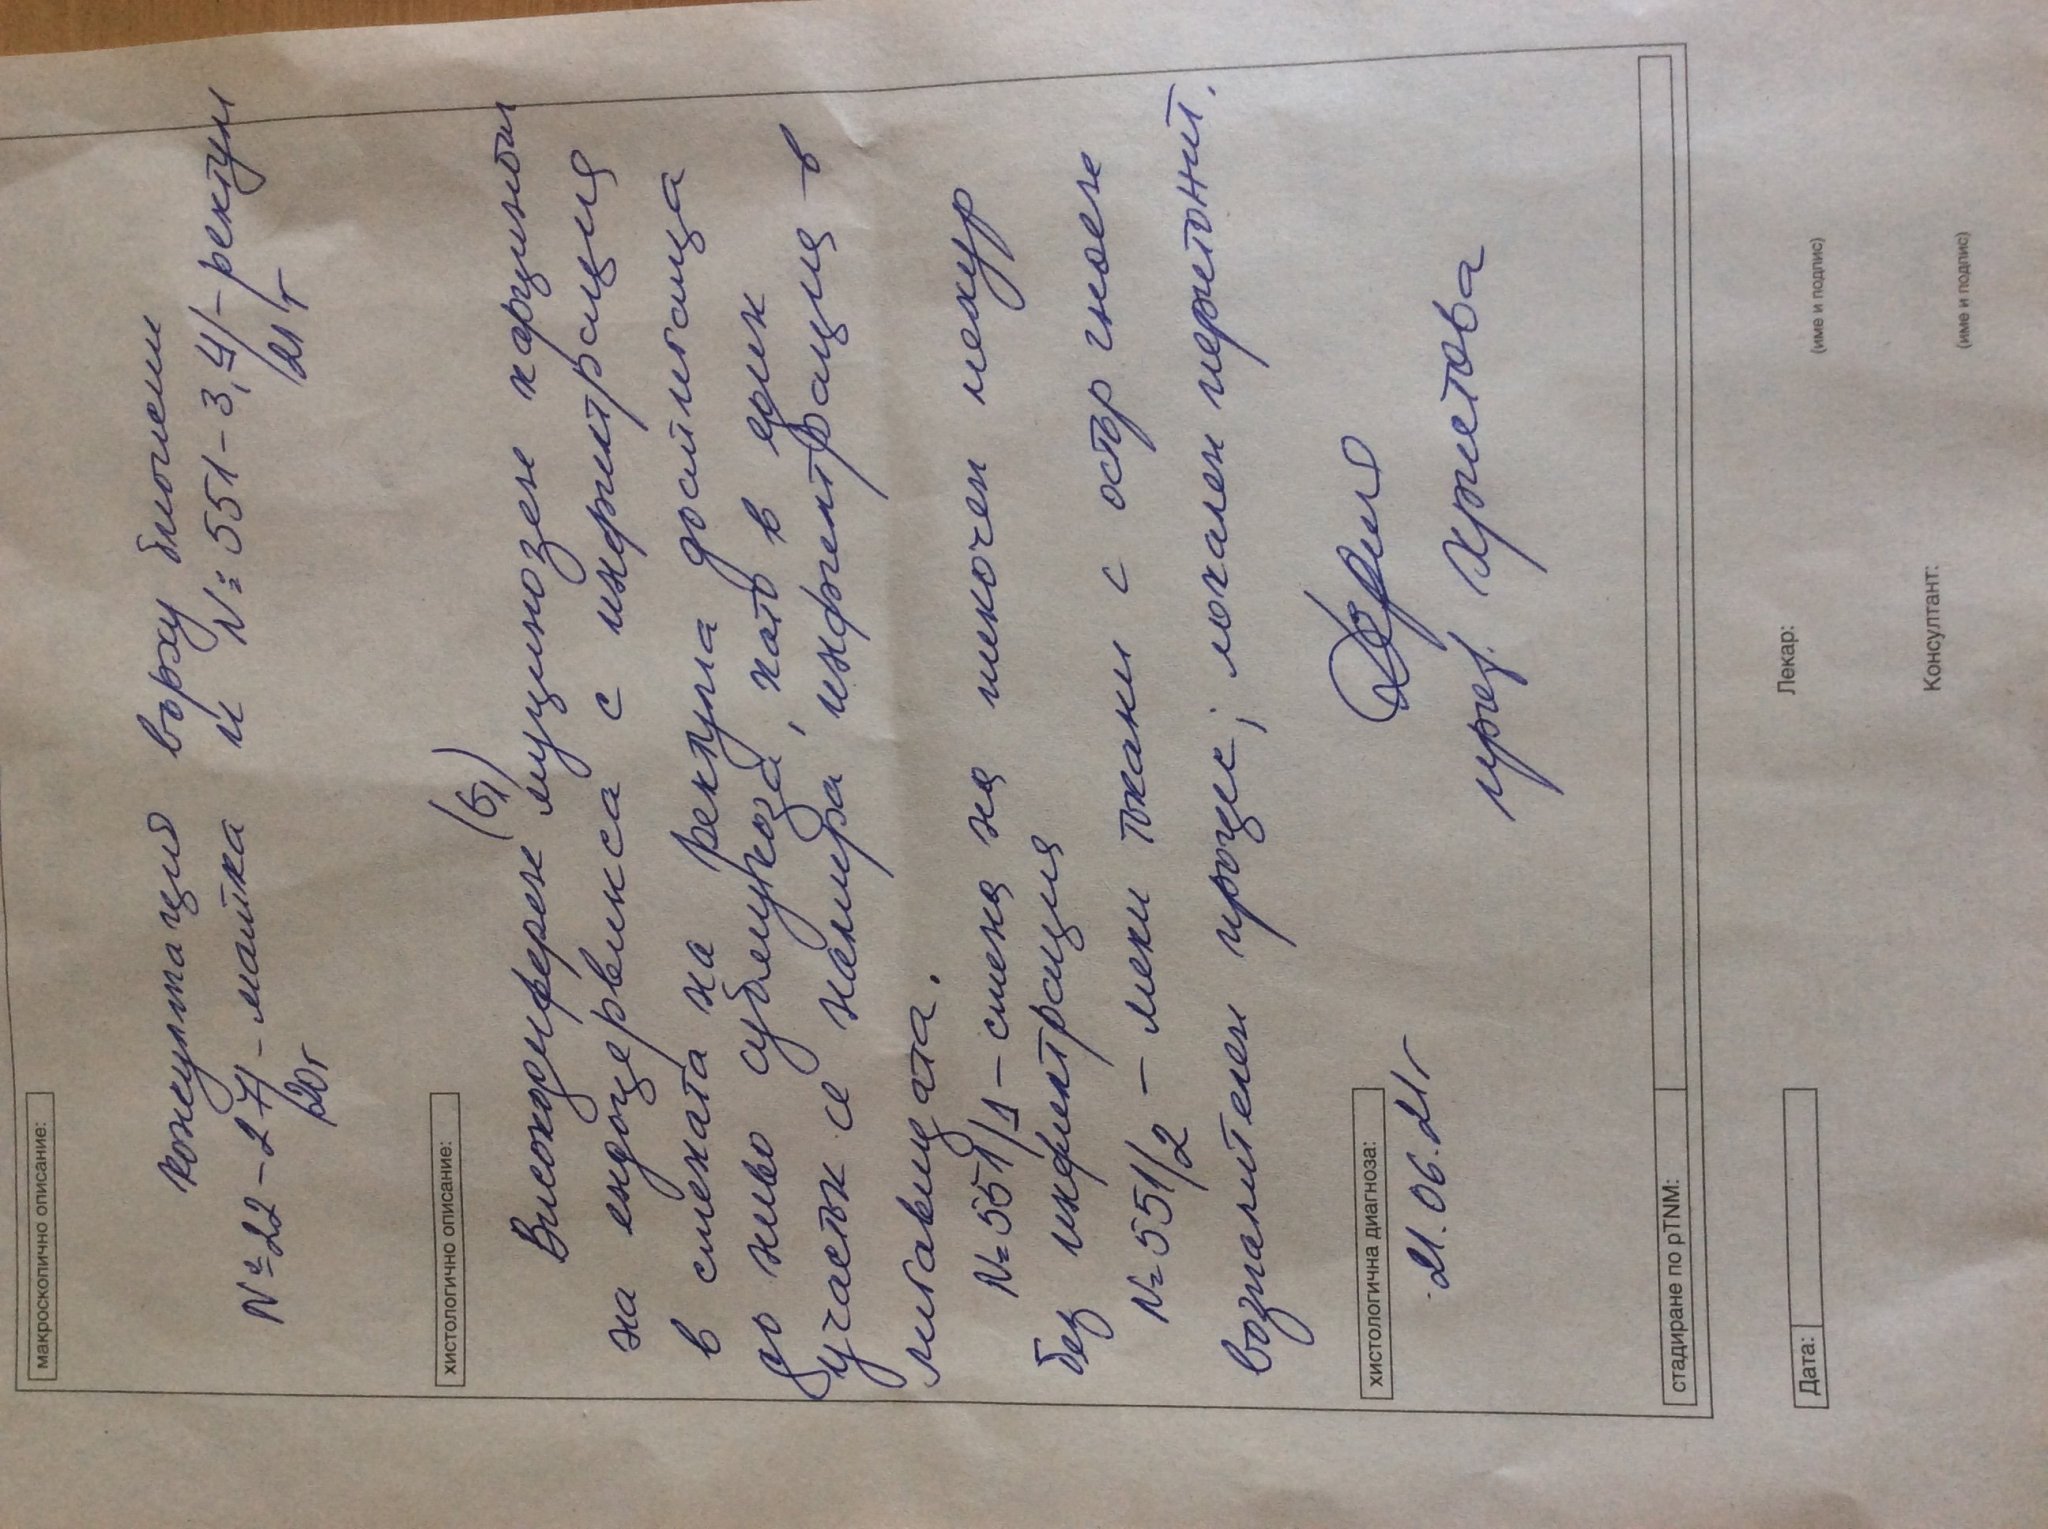 макроскопично описание:
консултация върху биопсии
№22-27/20г - матка и №551-3,4/21г - ректум
хистологично описание:
Високодиферен (G1) муцинозен карцином
на ендоцервикса с инфилтрация
в стената на ректума достигаща
до ниво субмукоза, като в един
участък се намира инфилтрация в
лигавицата.
№551/1 - стена на пикочен мехур
без инфилтрация
№551/2 - меки тъкани с остър гноен
възпалителен процес; локален перитонит.
хистологична диагноза:
21.06.21г
проф. Христова
стадиране по pTNM:
Дата:
Лекар:
(име и подпис)
Консултант:
(име и подпис)